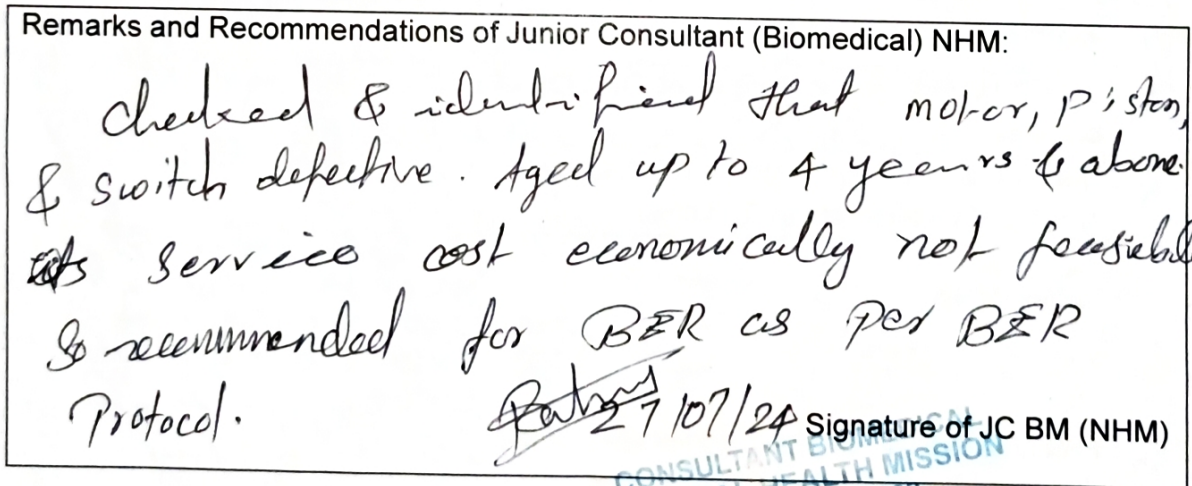 Remarks and Recommendations of Junior Consultant (Biomedical) NHM:
Checked & identified that motor, piston,
& switch defective. Aged up to 4 years & above.
its service cost economically not feasiebl
So recommended for BER as per BER
Protocol. 27/07/24 Signature of JC BM (NHM)
CONSULTANT BIOMEDICAL
HEALTH MISSION